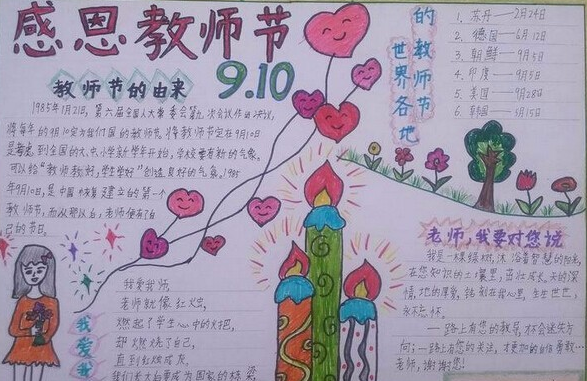 感恩教师节
9.10
教师节的由来
1985年1月21日，第六届全国人大常委会第九次会议作出决议，
将每年的9月10定为我们国的教师节。将教师节定在9月10日
是考虑到全国的大、中、小学新学年开始，学校要有新的气象。
可以给"教师教好，学生学好"创造良好的气氛。1985
年9月10日，是中国恢复建立的第一个
教师节，而从那以后，老师便有了自
己的节日。
世界各地
的教师节
1、苏丹——2月24日
2、德国——6月12日
3、朝鲜——9月5日
4、印度——9月5日
5、美国——9月28日
6、韩国——5月15日
老师，我要对您说
我是一棵绿树，沐浴着智慧的阳光，
在您知识的土壤里，茁壮成长，天的深
情，地的厚爱，铭刻在我心里，生生世世，
永不忘怀。
一路上有您的教导，才会迷失方
向；一路上有您的关注，才更加的自信勇敢…
老师，谢谢您！
我爱我
我爱我师，
老师就像红烛，
燃起了学生心中的火把，
甜燃烧了自己，
直到红烛成灰，
我们长大后要成为国家的栋梁